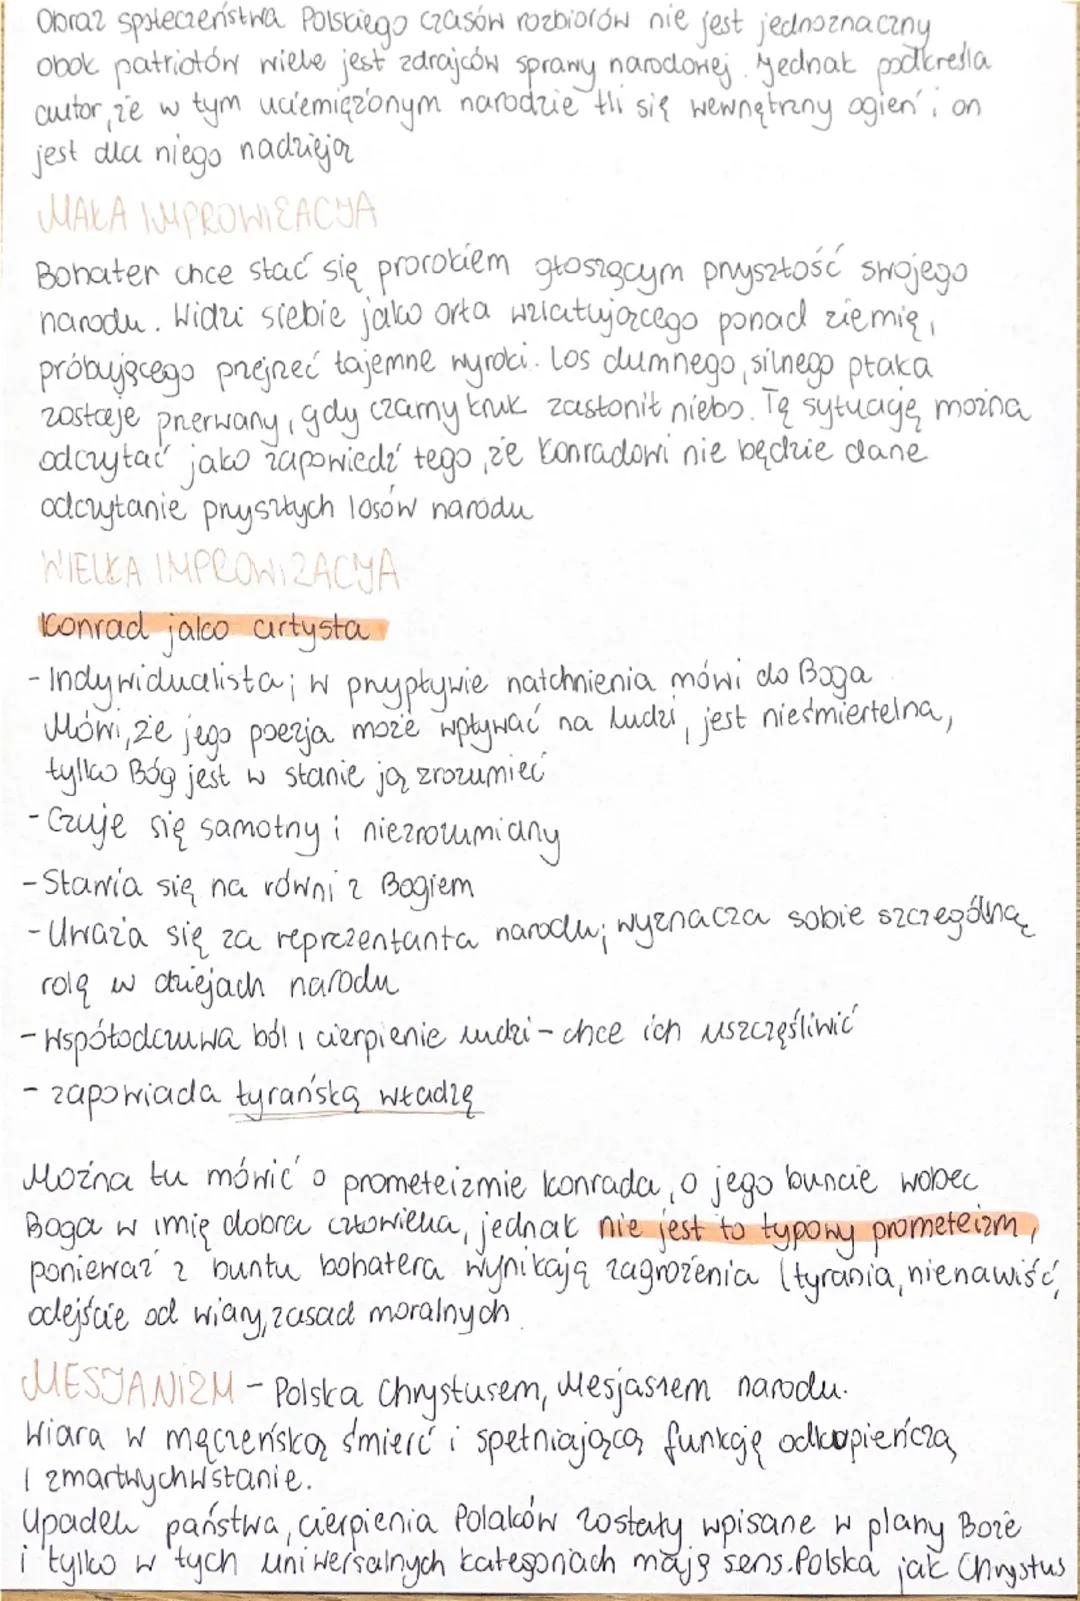 Obraz społeczeństwa Polskiego czasów rozbiorów nie jest jednoznaczny
obok patriotów wiele jest zdrajców sprawy narodowej. Jednak podkreśla
autor, że w tym uciemiężonym narodzie tli się wewnętrzny ogień i on
jest dla niego nadzieją
MAŁA IMPROWIZACJA
Bohater chce stać się prorokiem głoszącym przyszłość swojego
narodu. Widzi siebie jako orła wzlatującego ponad ziemię,
próbującego przejrzeć tajemne wyroki. Los dumnego, silnego ptaka
zostaje przerwany, gdy czarny kruk zasłonił niebo. Tę sytuację można
odczytać jako zapowiedź tego, że Konradowi nie będzie dane
odczytanie przyszłych losów narodu
WIELKA IMPROWIZACJA
Konrad jako artysta
- Indywidualista; w przypływie natchnienia mówi do Boga
Mówi, że jego poezja może wpływać na ludzi, jest nieśmiertelna,
tylko Bóg jest w stanie ją zrozumieć
- Czuje się samotny i niezrozumiany
- Stawia się na równi z Bogiem
- Uważa się za reprezentanta narodu; wyznacza sobie szczególną
rolę w dziejach narodu
- Współodczuwa ból i cierpienie ludzi - chce ich uszczęśliwić
- zapowiada tyrańską władzę
Można tu mówić o prometeizmie Konrada, o jego buncie wobec
Boga w imię dobra człowieka, jednak nie jest to typowy prometeizm,
ponieważ z buntu bohatera wynikają zagrożenia (tyrania, nienawiść,
odejście od wiary, zasad moralnych
MESJANIZM - Polska Chrystusem, Mesjaszem narodu.
Wiara w męczeńską śmierć i spełniającą funkcję odkupieńczą
i zmartwychwstanie.
Upadek państwa, cierpienia Polaków zostały wpisane w plany Boże
i tylko w tych uniwersalnych kategoriach mają sens. Polska jak Chrystus